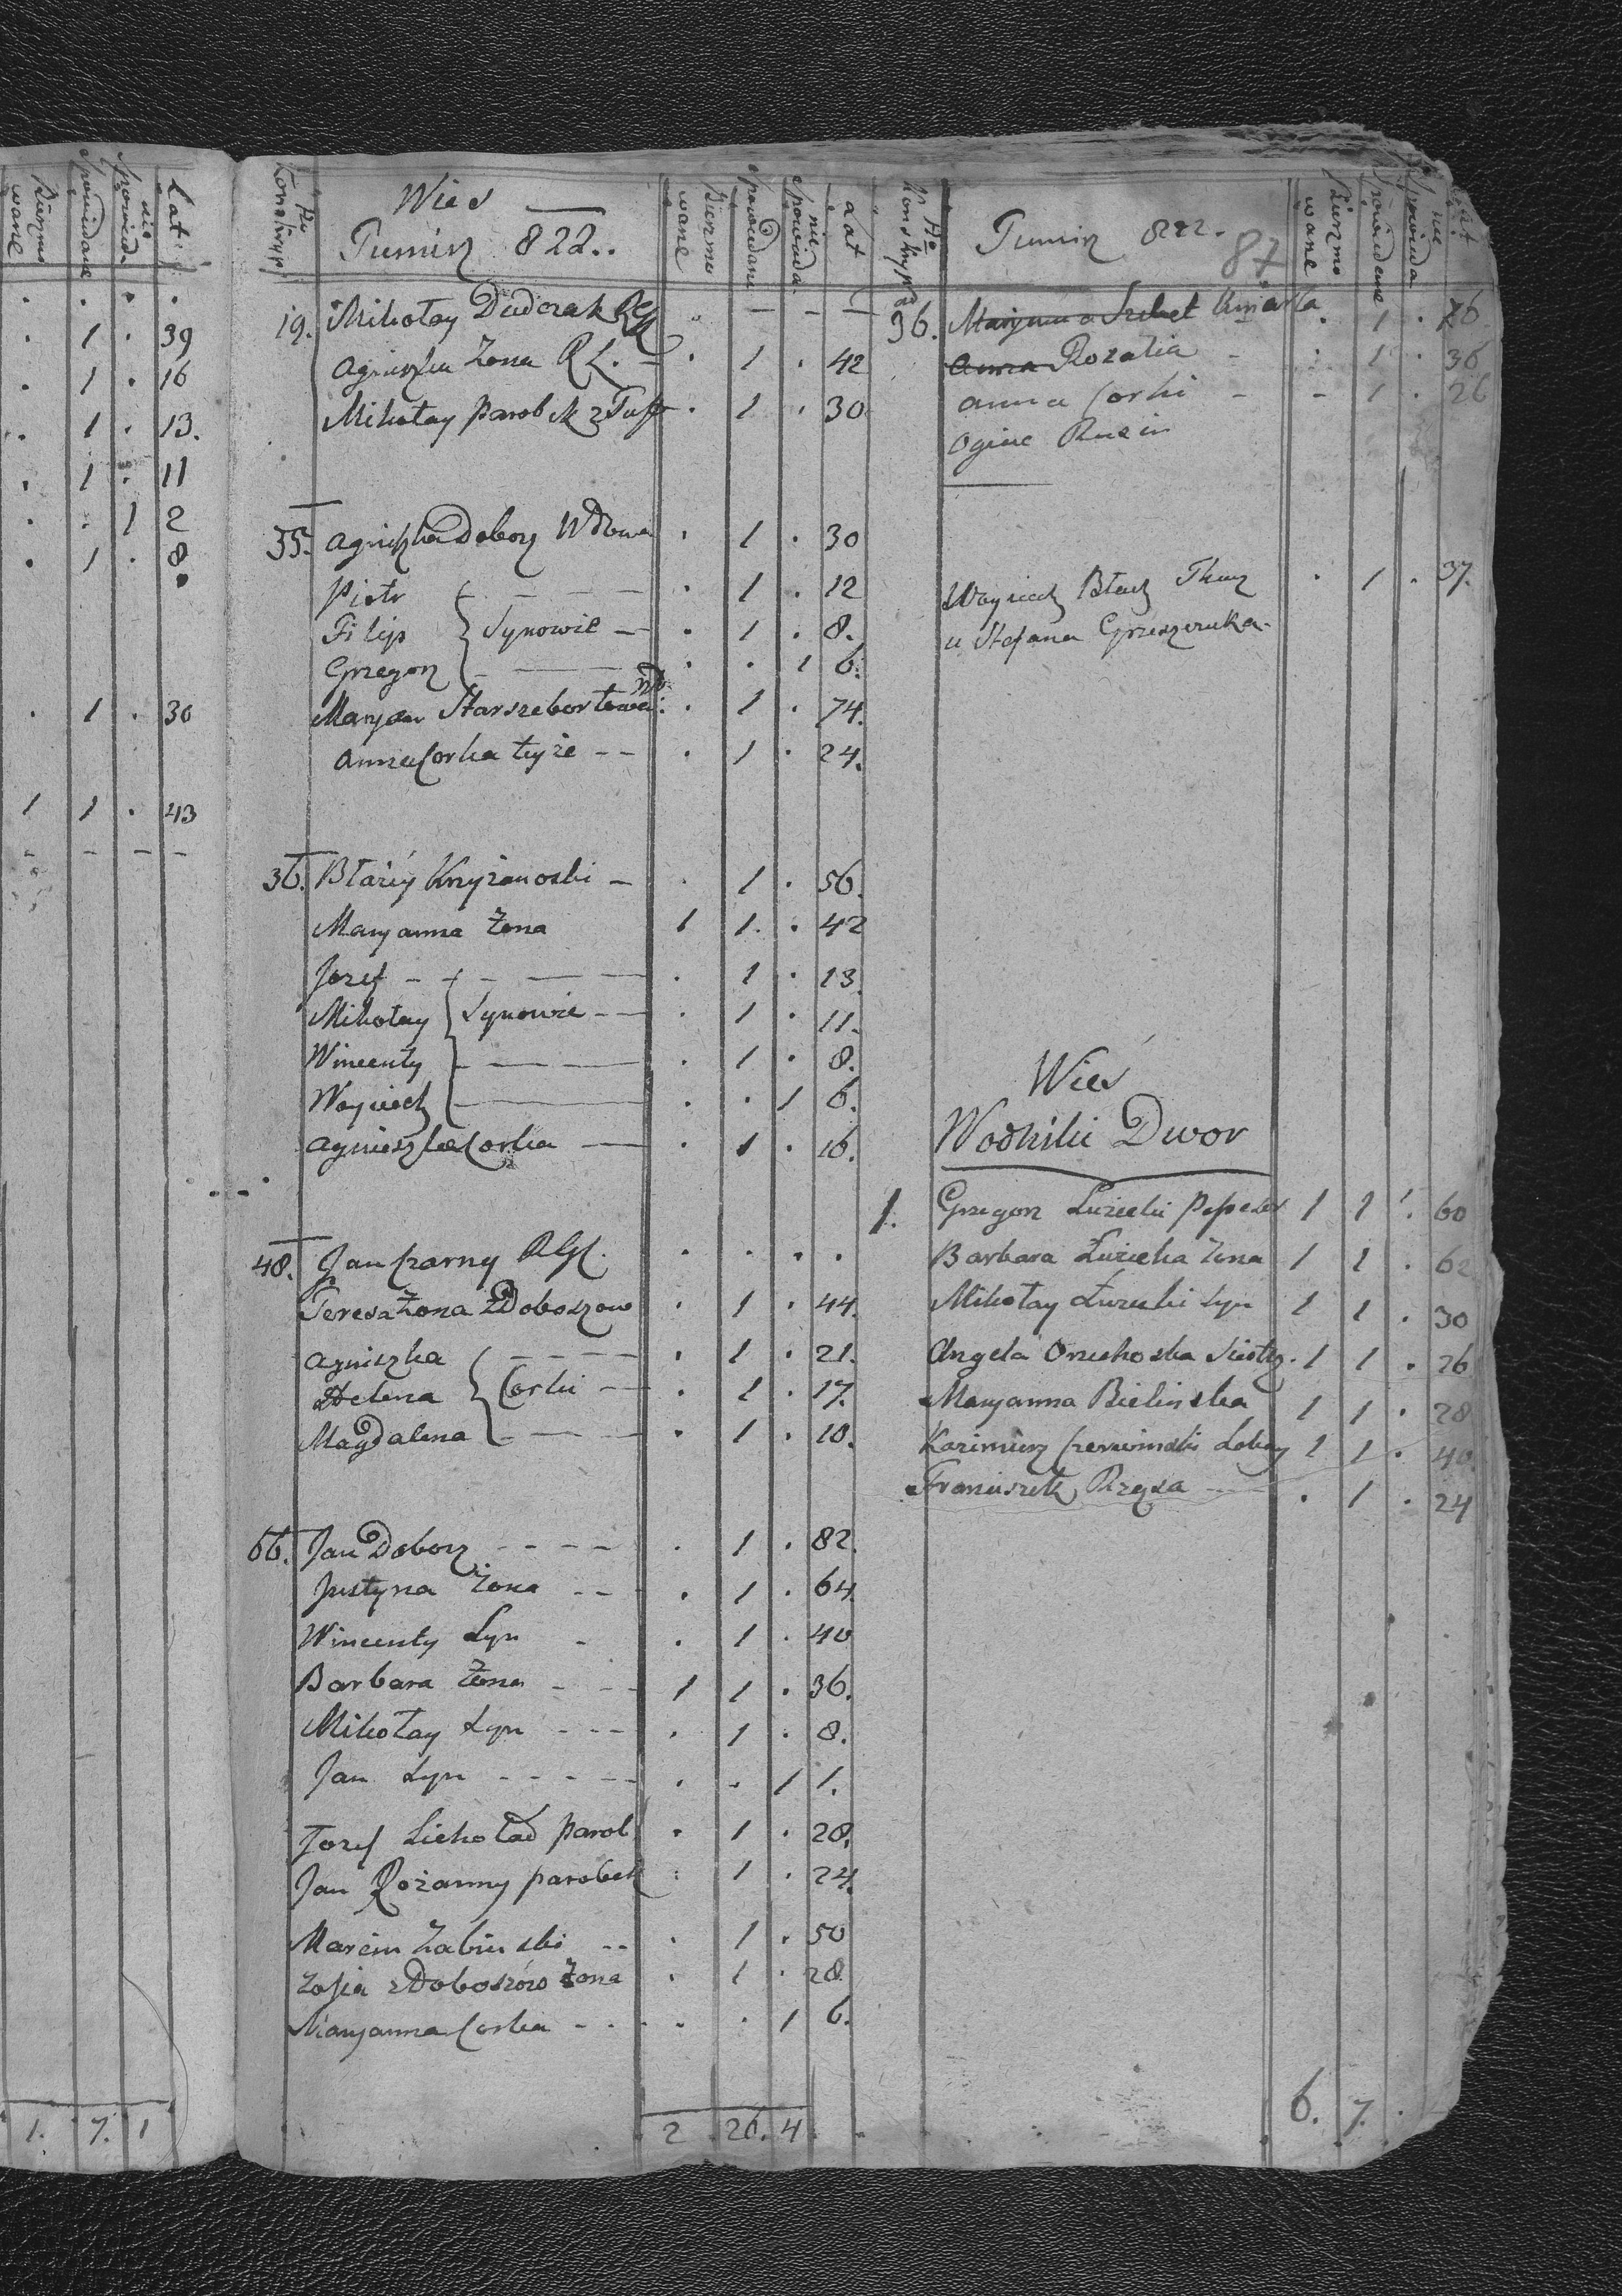 Lat
nie
spowiada
spowiadane
Bierzmo
wane
. . . .
. 1 . 39
. 1 . 16
. 1 . 13.
. 1 . 11
. . 1 2
. 1 . 8
. 1 . 30
1 1 . 43
- - - -
1. 7. 1
Nro
Konskryp
Wies
Tumirz 822..
Bierzmo
wane
spowiadane
nie
spowiada.
Lat
19. Mikołay Dudczak
Agniszka Zona R L. - . 1 . 42
Mikołay parobek z . 1 . 30
35. Agniszka Dobosz Wdowa . 1 . 30
Piotr . 1 . 12
Filip } Synowie . 1 . 8.
Grzegorz . . 1 6.
Maryan . 1 . 74.
Anna Corka teyże -- . 1 . 24.
36. Błażey Krzyżanoski - . 1 . 56.
Maryanna Zona 1 1. . 42
Jozef . 1 . 13.
Mikołay } Synowie . 1 . 11.
Wincenty . 1 . 8.
Woyciech . . 1 6.
Agnieszka Corka . 1 . 16.
48. Jan Czarny RGC. . . . .
Teresa Żona z Doboszow . 1 . 44.
Agniszka . 1 . 21.
Helena } Corki . 1 . 17.
Magdalena . 1 . 10.
66. Jan Dobosz - - - - . 1 . 82.
Justyna Żona -- . 1 . 64.
Wincenty Syn . . 1 . 40
Barbara Żona - - - 1 1 . 36.
Mikołay Syn - - - . 1 . 8.
Jan Syn - - - - - . . 1 1.
Jozef Lichoład parob . 1 . 28.
Jan Rożanny parobek . 1 . 24.
Marcin Zabinski -- . 1 . 50
Zofia z Doboszów Żona . 1 . 28
Maryanna Corka - . . . . 1 6.
2 26. 4
Nro
Konskryp
Tumirz 822.
87
Bierzmo
wane
spowiadane
nie
spowiada
Lat
96. Maryanna . 1 . 76
Anna Rozalia - . 1 . 36
Anna Corki - - 1 . 26
Ogiec Rusin
Woyciech Błach Tkacz . 1 . 37.
u Stefana Grzeszczuka.
Wieś
Wodniki Dwor
1. Grzegorz Łuzecki 1 1 . 60
Barbara Łuzecka Zona 1 1 . 62
Mikołay Łuzecki Syn 1 1 . 30
Angela Orzechoska Siostrz. 1 1 . 26
Maryanna Bielinska 1 1 . 28
Kazimierz Czerwinski Lokay 1 1 . 40
Franciszek Rzęsa . 1 . 24
6. 7. .